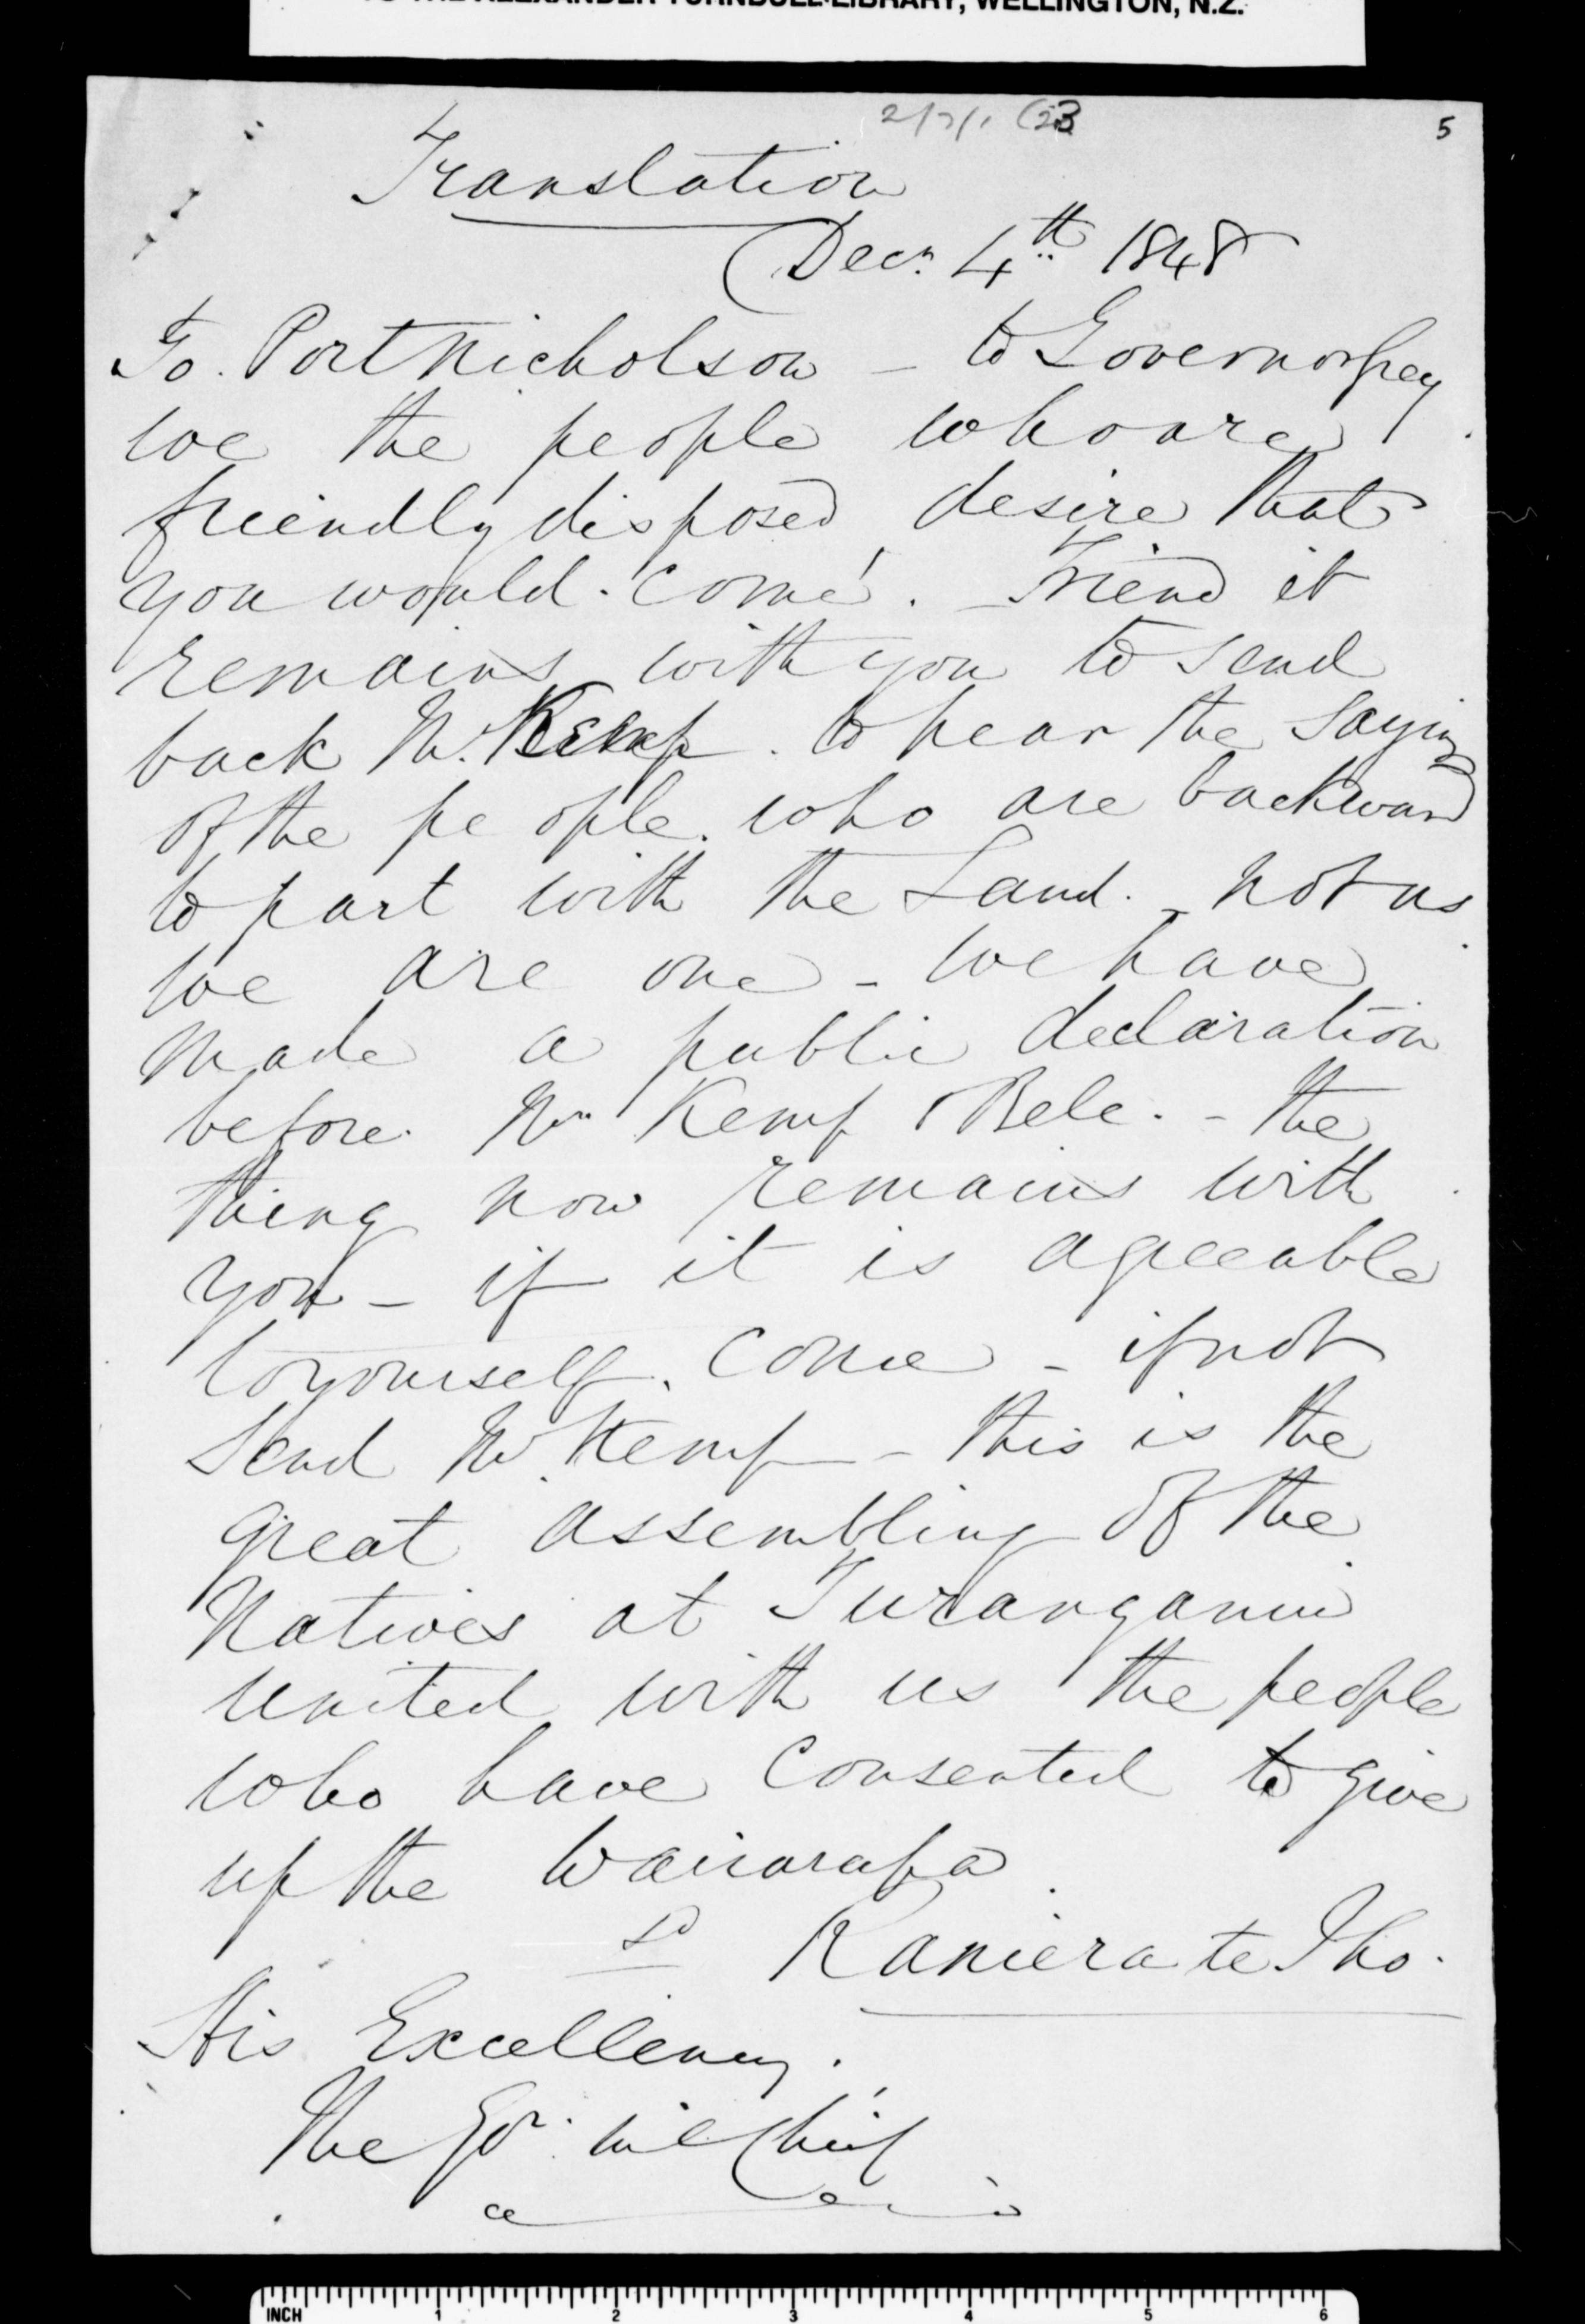 TO THE ALEXANDER TURNBULL LIBRARY, WELLINGTON, N.Z.
5
Translation
Decr. 4th 1848
To. Port Nicholson - to Governor Grey
we the people who are
friendly disposed desire that
you would. come. - Friend it
remains with you to send
back Mr. Kemp. to hear the saying
of the people. who are backward
to part with the Land. - not us
we are one - we have
made a public declaration
before. Mr Kemp & Bele. - the
thing now remains with
you - if it is agreeable
to yourself. Come - if not
Send Mr. Kemp - this is the
great assembling of the
Natives at Turanganui
united with us the people
who have consented to give
up the Wairarapa.
sd Raniera te Iho.
His Excellency.
The Gr. in Chief
INCH 1 2 3 4 5 6